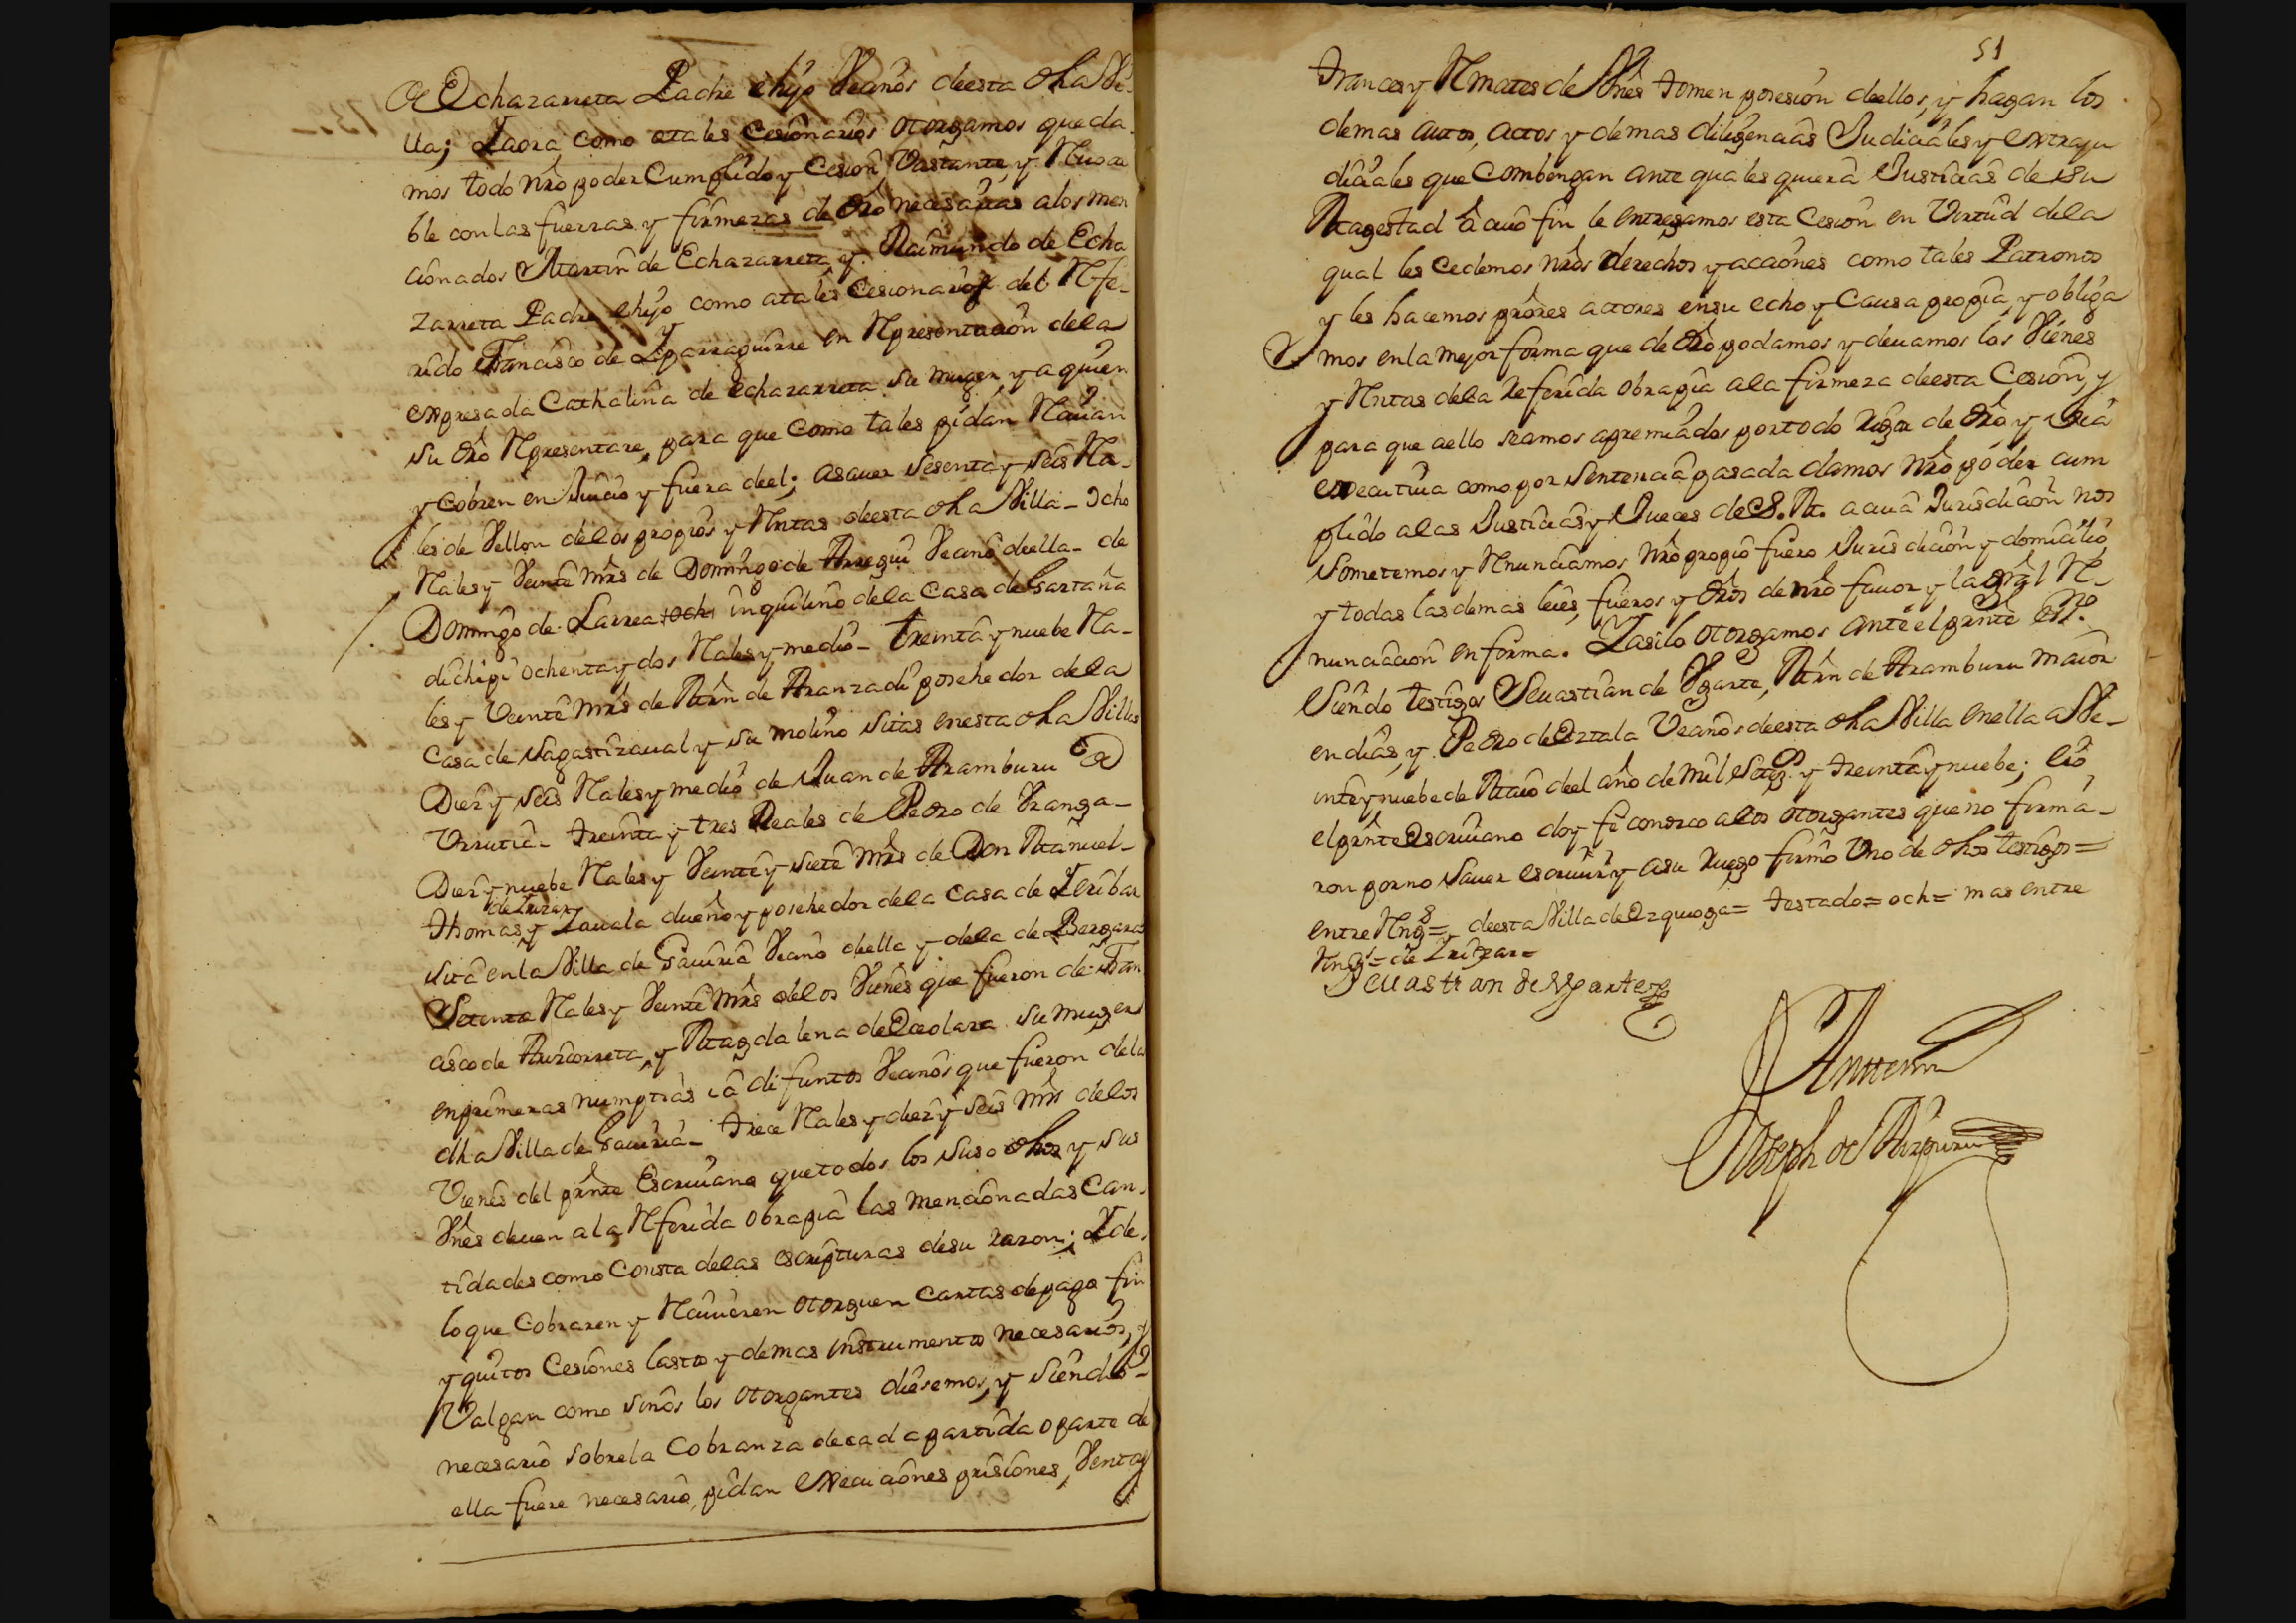 de Echazarreta Padre e hijo Vecinos de esta dha Vi-
lla; Y aora como a tales Cesionarios otorgamos que da
mos todo nro poder Cumplido y Cesion Vastante, y Reuoca
ble con las fuerzas y firmezas de dro necesarias a los men
cionados Martin de Echazarreta y Raimundo de Echa
zarreta Padre e hijo como a tales Cesionarios del Refe-
rido Francisco de Yparraguirre y en Representacion de la
expresada Cathalina de echazarreta su muger, y a quien
su dro Representare, para que Como tales pidan Reciuan
y Cobren en Juicio y fuera de el; asauer Sesenta y seis Rea-
les de Vellon de los propios y Rentas de esta dha Villa - Ocho
Reales y Veinte mrs de Domingo de Arregui Vecino de ella - de
Domingo de Larrea och inquilino de la Casa de Gartaña
dichipi ochenta y dos Reales y medio - treinta y nuebe Rea-
les y Veinte mrs de Mrn de Aranzadi posehedor de la
Casa de Sagastizaual y su molino sitas en esta dha Villa
Diez y seis Reales y medio de Juan de Aramburu
Vrrutia - treinta y tres Reales de Pedro de Vranga -
Diez y nuebe Reales y Veinte y siete mrs de Don Manuel -
de Lrizar
Thomas y Zauala dueño y posehedor de la Casa de Yeribar
sita en la Villa de Gauiria Vecino de ella y de la de Bergara
Setenta Reales y Veinte mrs de los Vienes que fueron de Fran
cisco de Ariscorreta, y Magdalena de Oceolaza su muger
en primeras numptias ia difuntos Vecinos que fueron de la
dha Villa de Gauiria - trece Reales y diez y seis mrs de los
Vienes del prnte Escriuano que todos los suso dhos y sus
Vnes deuen a la Referida obra pia las mencionadas Can-
tidades como Consta de las escripturas de su razon; Y de
lo que Cobraren y Reciuieren otorguen Cartas de pago fin
y quitos Cesiones lasto y demas instrumentos necesarios, y
Valgan como si nos los otorgantes diesemos, y siendo -
necesario sobre la Cobranza de cada partida o parte de
ella fuere necesario, pidan execuciones prisiones, Ventas
51
trances y Remates de Vnes tomen posesion de ellos, y hagan los
demas autos, actos y demas diligencias Judiciales y extraju
diciales que Combengan ante quales quiera Justicias de su
Magestad a cuio fin le entregamos esta Cesion en Virtud de la
qual les Cedemos nros derechos y acciones como tales Patronos
y les hacemos prores actores en su echo y Causa propia, y obliga
mos en la mejor forma que de dro podamos y deuamos los Vienes
y Rentas de la Referida obra pia a la firmeza de esta Cesion, y
para que a ello seamos apremiados por todo rigor de dro y Via
executiua como por Sentencia pasada damos nro poder cum
plido a las Justicias y Jueces de S. M. a cuia Jurisdicion nos
sometemos y Renunciamos nro propio fuero Jurisdicion y domicilio
y todas las demas leies, fueros y dros de nro fauor y la gral Re-
nunciacion en forma. Y asi lo otorgamos ante el prnte essno.
Siendo testigos Seuastian de Vgarte, Mrn de Aramburu maior
en dias, y Pedro de Oztala Vecinos de esta dha Villa en ella a Ve-
inte y nuebe de Maio de el año de mil setezs. y treinta y nuebe; e io
el prnte Escriuano doy fe conozco a los otorgantes que no firma-
ron por no sauer escriuir y a su ruego firmo Vno de dhos testigos =
entre Rengs = y de esta Villa de Ezquioga = testado = och = mas entre
Rengs = de Lrizar =
Seuastian de Vgarte
Ante mi
Joseph de Aizpuru